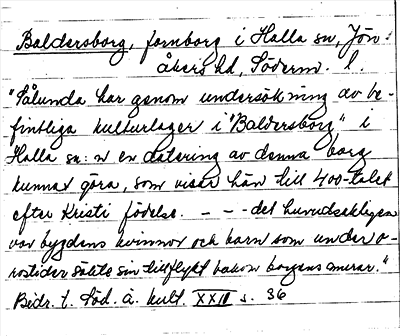 Baldersborg, fornborg i Halla sn, Jön-
åkers hd, Söderm. l.
"Sålunda har genom undersökning av be-
fintliga kulturlager i "Baldersborg" i
Halla sn:n en datering av denna borg
kunnat göra, som visar hän till 400-talet
efter Kristi födelse. - - - det huvudsakligen
var bygdens kvinnor och barn som under o-
rostider sökte sin tillflykt bakom borgens murar."
Bidr. t. Söd. ä. kult. XXII s. 36